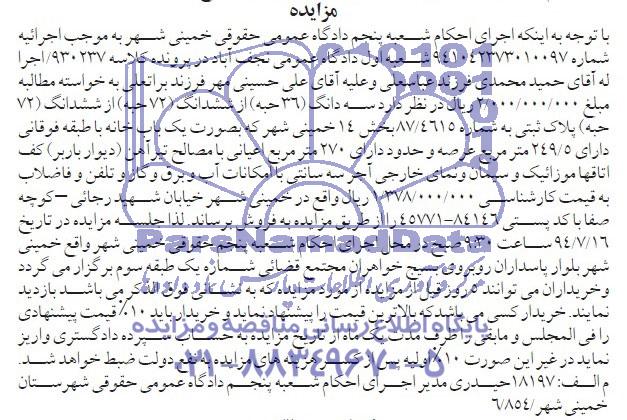 مزایده
با توجه به اینکه اجرای احکام شعبه پنجم دادگاه عمومی حقوقی خمینی شهر به موجب اجرائیه
شماره ۹۴۱۰۴۲۳۷۳۰۱۰۰۰۹۷ شعبه اول دادگاه عمومی نجف آباد در پرونده کلاسه ۹۳۰۲۳۷/اجرا
له آقای حمید محمدی فرزند عباسعلی وعلیه آقای علی حسینی مهر فرزند براتعلی به خواسته مطالبه
مبلغ ۲/۰۰۰/۰۰۰/۰۰۰ ریال در نظر دارد سه دانگ (۳۶ حبه) از ششدانگ (۷۲ حبه) از ششدانگ (۷۲
حبه) پلاک ثبتی به شماره ۸۷/۴۶۱۵ بخش ۱۴ خمینی شهر که بصورت یک باب خانه با طبقه فوقانی
دارای ۲۴۹/۵ متر مربع عرصه و حدود دارای ۲۷۰ متر مربع اعیانی با مصالح تیرآهن (دیوار باربر) کف
اتاقها موزائیک و سیمان ونمای خارجی آجر سه سانتی با امکانات آب و برق و گاز و تلفن و فاضلاب
به قیمت کارشناسی ۳۷۸/۰۰۰/۰۰۰ ریال واقع در خمینی شهر خیابان شهید رجائی – کوچه
صفا با کد پستی ۸۴۱۴۶-۴۵۷۷۱ را از طریق مزایده به فروش برساند. لذا جلسه مزایده در تاریخ
۹۴/۷/۱۶ ساعت ۹:۳۰ صبح در محل اجرای احکام شعبه پنجم حقوقی خمینی شهر واقع خمینی
شهر بلوار پاسداران روبروی بسیج خواهران مجتمع قضائی شماره یک طبقه سوم برگزار می گردد
و خریداران می توانند ۵ روز قبل از موعد از مورد مزایده که به نشانی فوق الذکر می باشد بازدید
نمایند. خریدار کسی می باشد که بالاترین قیمت را پیشنهاد نماید و خریدار باید ۱۰٪ قیمت پیشنهادی
را فی المجلس و مابقی را ظرف مدت یک ماه از تاریخ مزایده به حساب سپرده دادگستری واریز
نماید در غیر این صورت ۱۰٪ اولیه پس از کسر هزینه های مزایده به نفع دولت ضبط خواهد شد.
م الف: ۱۸۱۹۷ حیدری مدیر اجرای احکام شعبه پنجم دادگاه عمومی حقوقی شهرستان
خمینی شهر /۶/۸۵۴
ParsNamadData
پایگاه اطلاع رسانی مناقصه و مزایده
۰۲۱-۸۸۳۴۹۶۷۰-۵